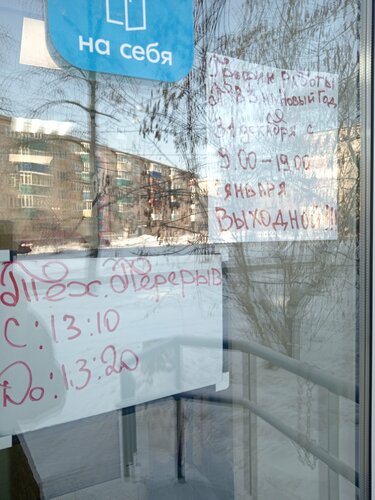 на себя
График работы
Новый Год
31 декабря с
9:00 - 19:00
1 января
Выходной!!!
Тех. Перерыв
С: 13:10
До: 13:20